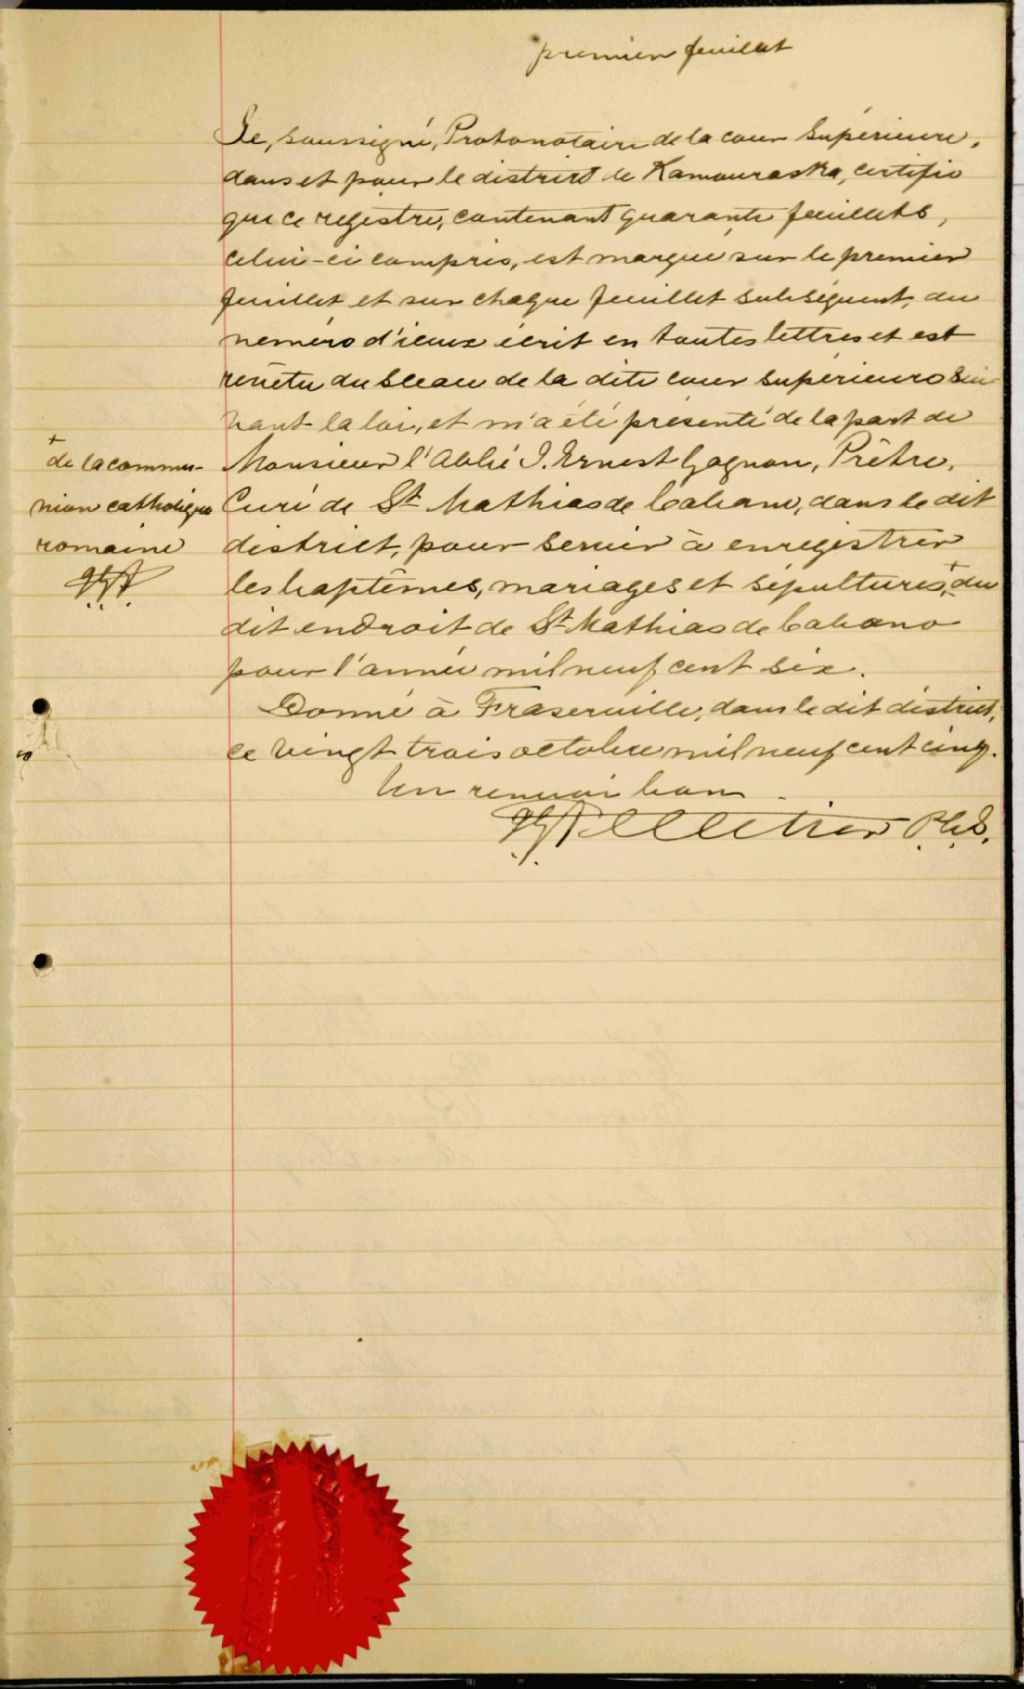 premier feuillet
Je, soussigné, Protonotaire de la cour Supérieure,
dans et pour le district de Kamouraska, certifie
que ce registre, contenant quarante feuillets,
celui-ci compris, est marqué sur le premier
feuillet et sur chaque feuillet subséquent, du
numéro d'iceux écrit en toutes lettres et est
revêtu du sceau de la dite cour supérieure sui
vant la loi, et m'a été présenté de la part de
Monsieur l'Abbé J. Ernest Gagnon, Prêtre,
Curé de St Mathias de Cabano, dans le dit
district, pour servir à enregistrer
les baptêmes, mariages et sépultures,+ du
dit endroit de St Mathias de Cabano
pour l'année mil neuf cent six.
Donné à Fraserville, dans le dit district,
ce vingt trois octobre mil neuf cent cinq.
Un renvoi bon
Pelletier P.C.S.
+
de la commu-
nion catholique
romaine